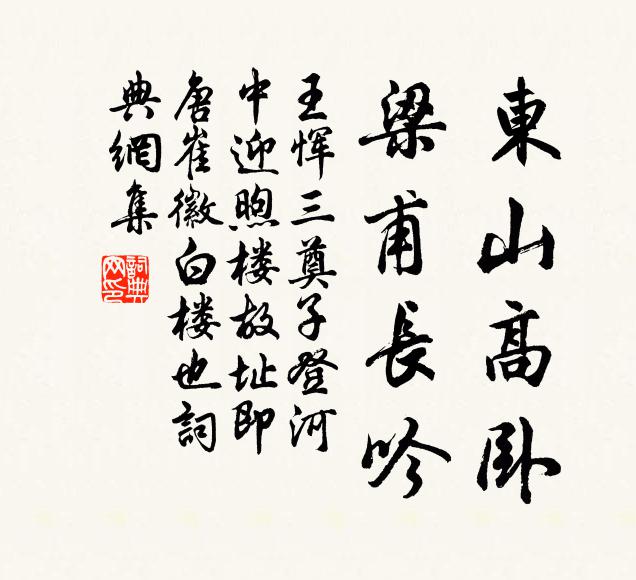 東山高卧
梁甫長吟
王惲三奠子登河
中迎煦楼故址即
唐崔徽白楼也詞
典網集
詞典網印